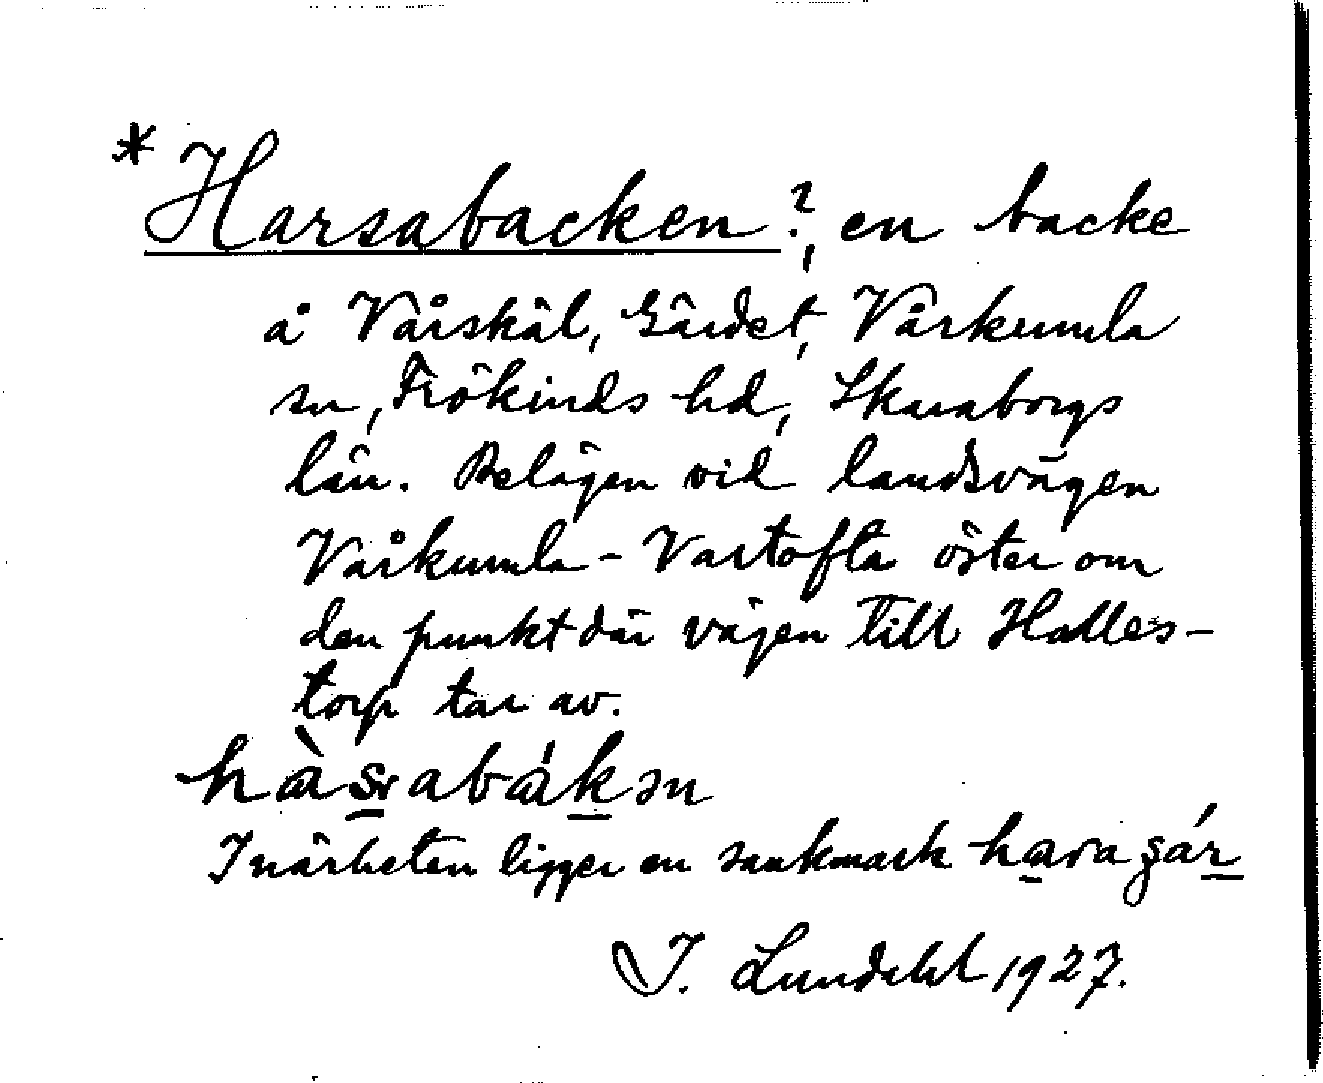 * Harsabacken?, en backe
å Vårskäl, Gärdet, Vårkumla
sn, Frökinds hd, Skaraborgs
län. Belägen vid landsvägen
Vårkumla - Vartofta öster om
den punkt där vägen till Halles-
torp tar av.
I närheten ligger en sankmark
I. Lundahl 1927.